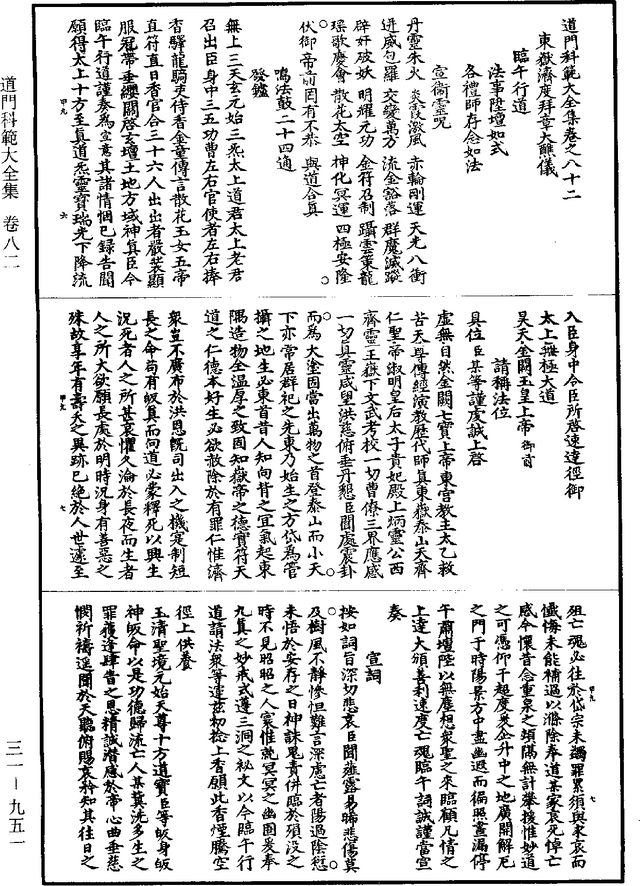 道門科範大全集卷之八十二
東嶽濟度拜章大醮儀
臨午行道
法事陞壇如式
各禮師存念如法
宣衞靈呪
丹靈朱火　炎震激風　赤輪剛運　天光八衝
迸威包羅　交變萬方　流金谿落　群魔滅蹤
辟奸破妖　明耀元功　金符召制　躡雲乘龍
瑶歌慶會　散花太空　神化冥運　四極安隆
伏御帝前罔有不恭　與道合真
鳴法鼓二十四通
發爐
無上三天玄元始三炁太上道君太上老君
召出臣身中三五功曹左右官使者左右捧
香驛龍騎吏侍香金童傳言散花玉女五帝
直符直日香官合三十六人出出者嚴裝顯
服冠帶垂纓關啓玄壇土地方域神真臣今
臨午行道謹奏為宣意其諸情悃已録告聞
願得太上十方至真道炁靈寶瑞光下降流
入臣身中令臣所啓速達徑御
太上無極大道
昊天金闕玉皇上帝御前
請稱法位
具位臣某等謹虔誠上啓
虛無自然金闕七寶上帝東宫教主太乙救
苦天尊傳經演教歷代師真東嶽泰山天齊
仁聖帝淑明皇后太子貴妃殿上炳靈公西
齊靈王嶽下文武考校一切曹僚三界應感
一切真靈咸望洪慈俯垂丹懇臣聞處震卦
而為大塗因當出萬物之首登泰山而小天
下亦常居群祀之先東乃始生之方岱為管
攝之地生必東首昔人知向背之宜氣起東
隅造物全温厚之致固知嶽帝之德實符天
道之仁德本好生必欲赦除於有罪仁惟濟
衆豈不廣布於洪恩旣司出入之機定制短
長之命苟有皈真而向道必蒙釋死以興生
況死者人之所甚哀懼久淪於長夜而生者
人之所大欲願長處於明時況身有善惡之
殊故享年有壽夭之異跡已絶於人世遽至
殂亡魂必往於岱宗未蠲罪累須與求哀而
懺悔未能補過以滌除奉道某家哀死悼亡
感今懷昔念重泉之煩隔無計攀援惟妙道
之可憑仰干超度爰企升中之地廣開解厄
之門于時陽景方中盡幽遐而徧照晝漏停
午肅壇陛以無塵想衆聖之來臨顧凡情之
上達大頒善利速度亡魂臨午詞誠謹當宣
奏
宣詞
按如詞旨深切悲哀臣聞薤露易晞悲傷莫
及樹風不静慘怛難言深慮亡者陽過陰愆
未悟於安存之日神誅鬼責併臨於殞没之
時不見昭昭之人寰惟就冥冥之幽圄爰奉
九真之妙戒式遵三洞之秘文以今臨午行
道請法衆等運茲初捻上香願此香煙騰空
徑上供養
玉清聖境元始天尊十方道寶臣等皈身皈
神皈命以是功德歸流亡人某冀洗多生之
罪獲逢肆眚之恩精誠潜感於帝心曲垂慈
憫祈禱遥聞於天聽俯賜哀矜知其往日之
道門科範大全集　卷八二
三一－九五一